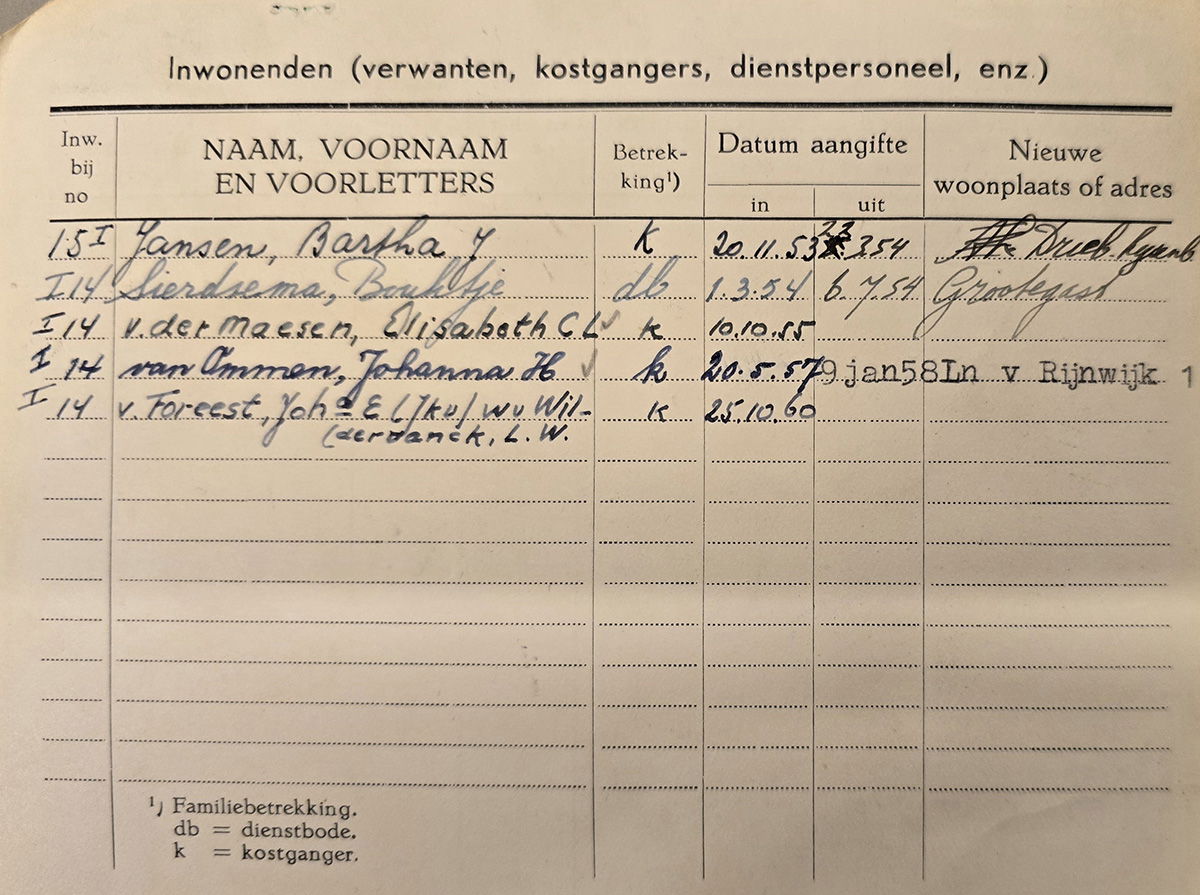 Inwonenden (verwanten, kostgangers, dienstpersoneel, enz.)
Inw. bij no
NAAM, VOORNAAM EN VOORLETTERS
Betrek-king¹)
Datum aangifte
in
uit
Nieuwe woonplaats of adres
15 I Jansen, Bartha J k 20.11.53 23.3.54 Drieb.
I 14 Sierdsema, Bouktje db 1.3.54 6.7.54 Grootegast
I 14 v. der Maesen, Elisabeth C L ✓ k 10.10.55
I 14 van Ommen, Johanna H ✓ k 20.5.57 9 jan58 Ln v Rijnwijk 1
I 14 v. Foreest, Joh^a E (Jkv) wv Wil-
(dervanck, L.W. k 25.10.60
¹) Familiebetrekking.
db = dienstbode.
k = kostganger.